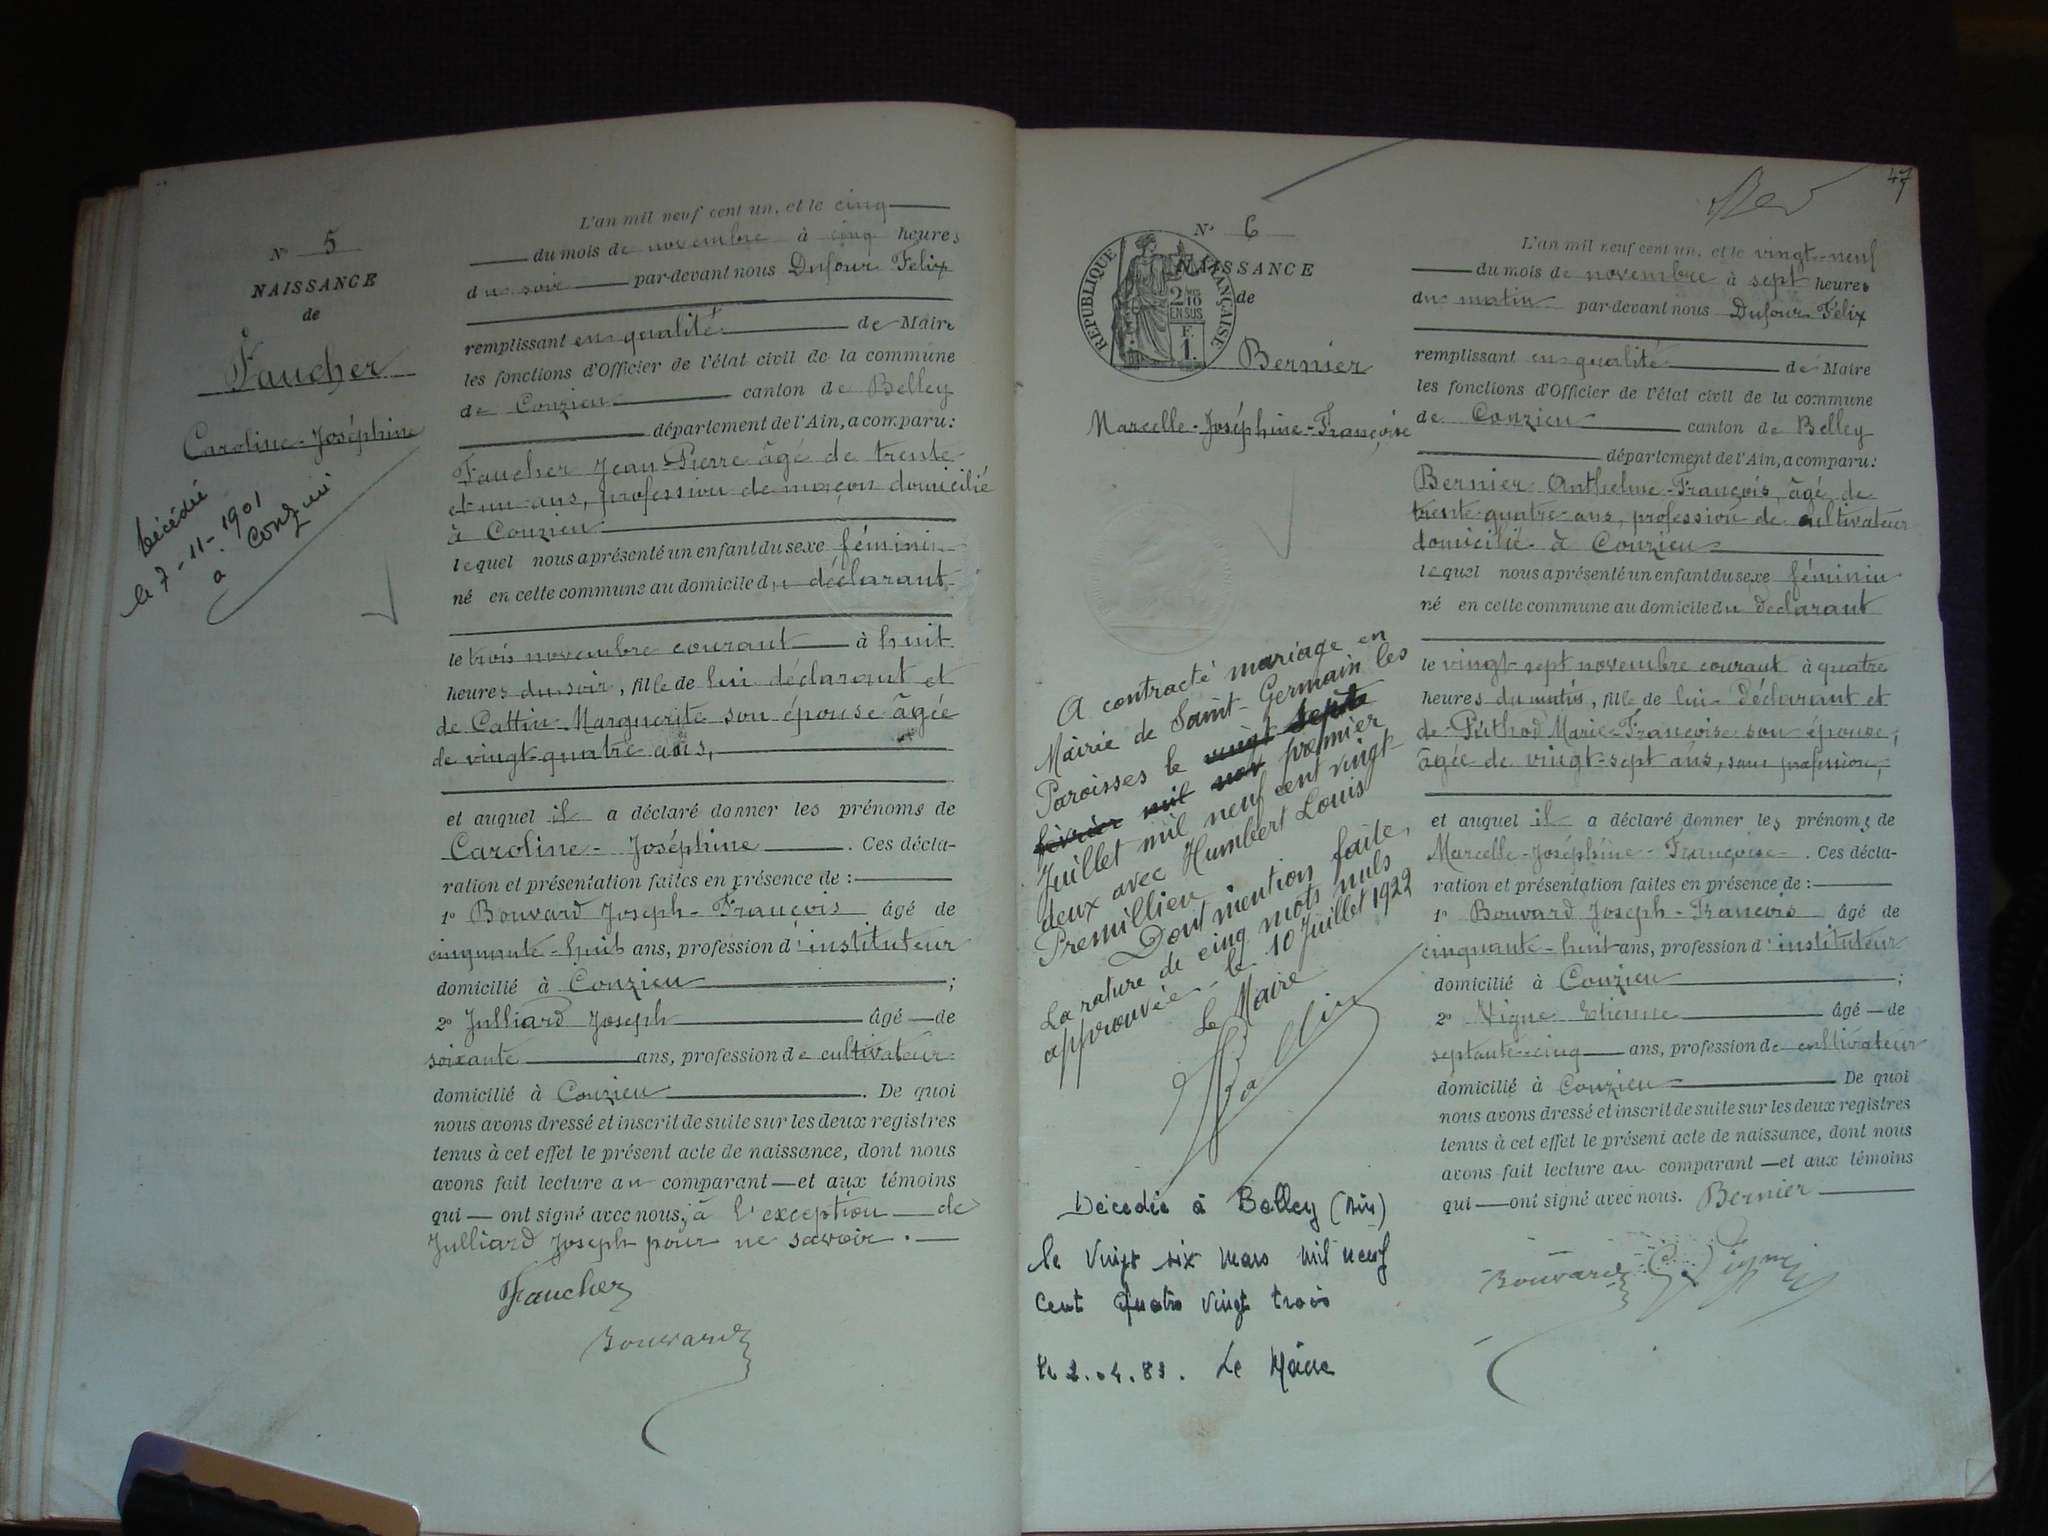 N° 5
NAISSANCE
de
Faucher
Caroline-Joséphine
Décédée
le 7-11-1901
à Conzieu
L'an mil neuf cent un, et le cinq
du mois de novembre à cinq heures
du soir par-devant nous Dufour Félix
remplissant en qualité de Maire
les fonctions d'Officier de l'état civil de la commune
de Conzieu canton de Belley
département de l'Ain, a comparu:
Faucher Jean-Pierre âgé de trente
et un ans, profession de maçon domicilié
à Conzieu
lequel nous a présenté un enfant du sexe féminin
né en cette commune au domicile du déclarant
le trois novembre courant à huit
heures du soir, fille de lui déclarant et
de Cattin Marguerite son épouse âgée
de vingt-quatre ans,
et auquel il a déclaré donner les prénoms de
Caroline-Joséphine. Ces décla-
ration et présentation faites en présence de :
1° Bouvard Joseph-François âgé de
cinquante-huit ans, profession d'instituteur
domicilié à Conzieu ;
2° Julliard Joseph âgé de
soixante ans, profession de cultivateur
domicilié à Conzieu. De quoi
nous avons dressé et inscrit de suite sur les deux registres
tenus à cet effet le présent acte de naissance, dont nous
avons fait lecture au comparant et aux témoins
qui ont signé avec nous, à l'exception de
Julliard Joseph pour ne savoir.
Faucher
Bouvard
47
N° 6
NAISSANCE
de
RÉPUBLIQUE FRANÇAISE
2/10
EN SUS
F.
1.
Bernier
Marcelle-Joséphine-Françoise
A contracté mariage en
Mairie de Saint-Germain les
Paroisses le vingt sept
février mil nov premier
Juillet mil neuf cent vingt
deux avec Humbert Louis
Premillieu
Dont mention faite,
La rature de cinq mots nuls
approuvée le 10 Juillet 1922
Le Maire
Décédée à Belley (Ain)
le vingt six mars mil neuf
cent quatre vingt trois
le 2.04.83. Le Maire
L'an mil neuf cent un, et le vingt-neuf
du mois de novembre à sept heures
du matin par-devant nous Dufour Félix
remplissant en qualité de Maire
les fonctions d'Officier de l'état civil de la commune
de Conzieu canton de Belley
département de l'Ain, a comparu:
Bernier Anthelme-François, âgé de
trente-quatre ans, profession de cultivateur
domicilié à Conzieu
lequel nous a présenté un enfant du sexe féminin
né en cette commune au domicile du déclarant
le vingt-sept novembre courant à quatre
heures du matin, fille de lui déclarant et
de Puthod Marie-Françoise son épouse,
âgée de vingt-sept ans, sans profession,
et auquel il a déclaré donner les prénoms de
Marcelle-Joséphine-Françoise. Ces décla-
ration et présentation faites en présence de :
1° Bouvard Joseph-François âgé de
cinquante-huit ans, profession d'instituteur
domicilié à Conzieu ;
2° Vigne Etienne âgé de
septante-cinq ans, profession de cultivateur
domicilié à Conzieu De quoi
nous avons dressé et inscrit de suite sur les deux registres
tenus à cet effet le présent acte de naissance, dont nous
avons fait lecture au comparant et aux témoins
qui ont signé avec nous. Bernier
Bouvard